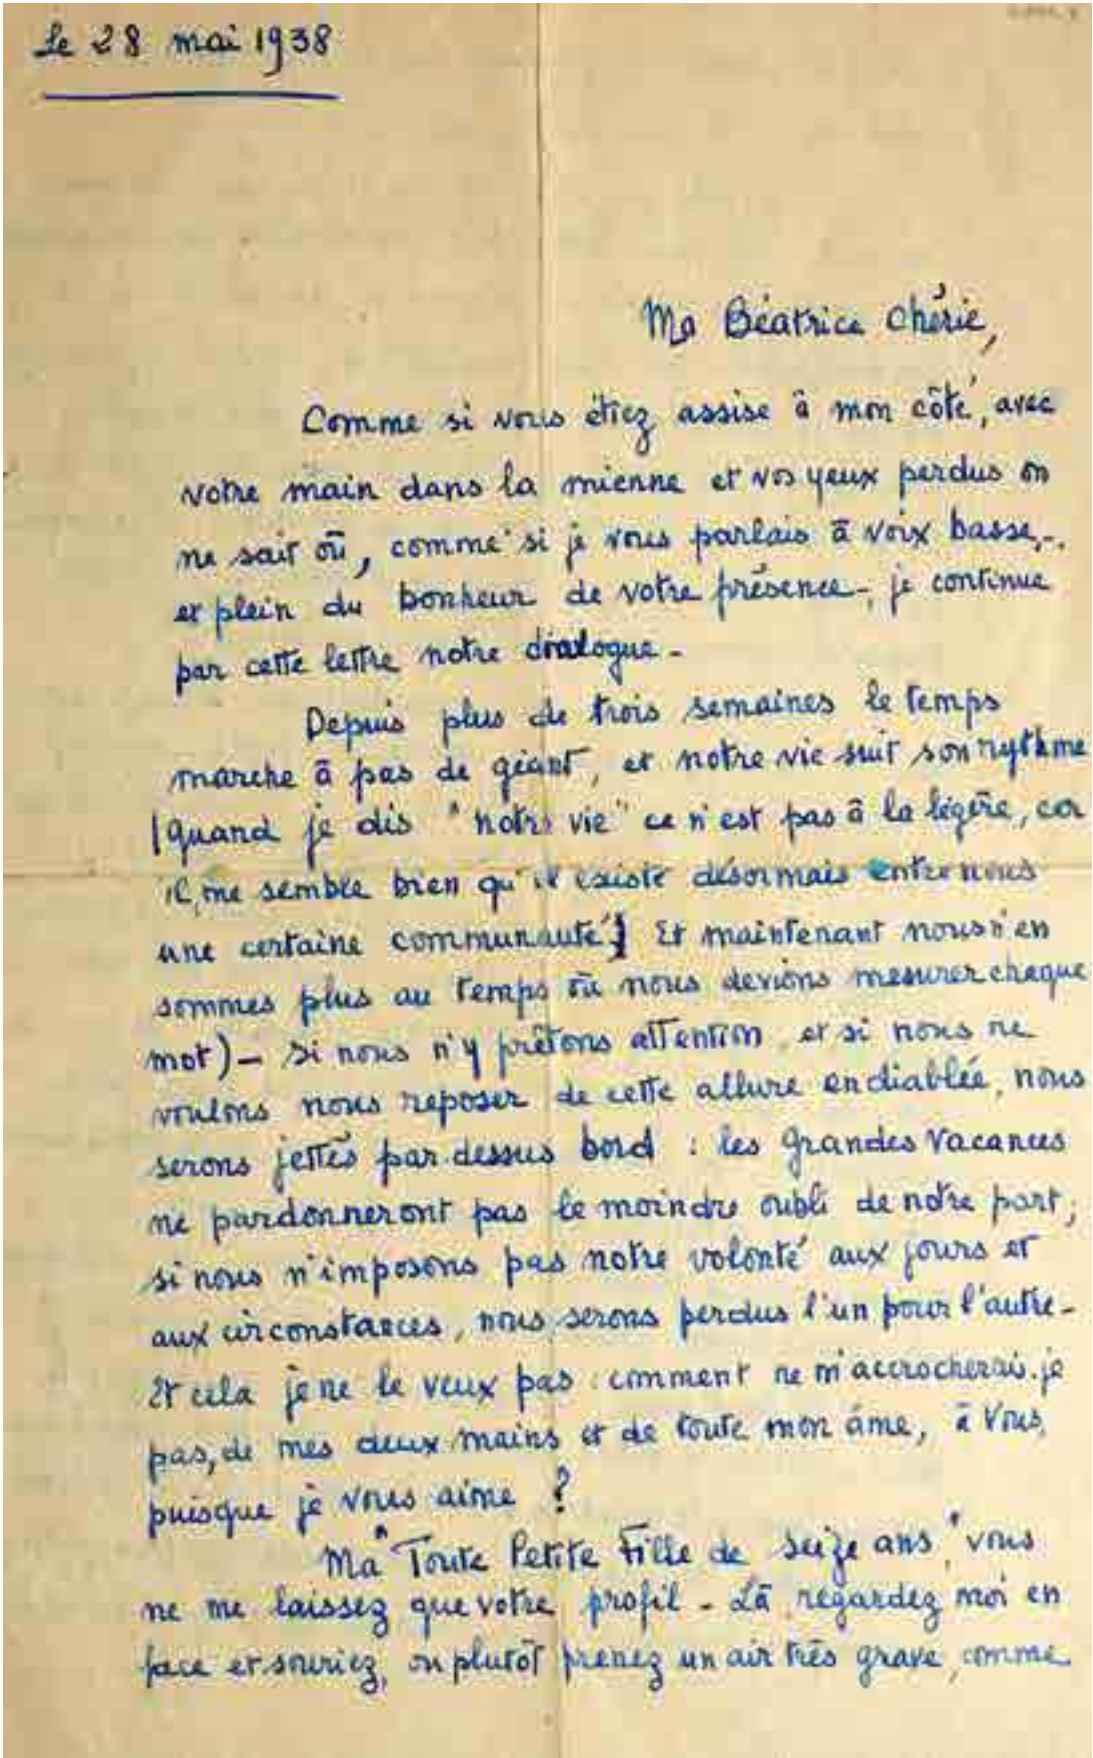 Le 28 mai 1938
Ma Béatrice Chérie,
Comme si vous étiez assise à mon côté, avec
votre main dans la mienne et vos yeux perdus on
ne sait où, comme si je vous parlais à voix basse,-.
et plein du bonheur de votre présence-, je continue
par cette lettre notre dialogue-
Depuis plus de trois semaines le temps
marche à pas de géant, et notre vie suit son rythme
(quand je dis "notre vie" ce n'est pas à la légère, car
il me semble bien qu'il existe désormais entre nous
une certaine communauté) Et maintenant nous n'en
sommes plus au temps où nous devions mesurer chaque
mot) - Si nous n'y prêtons attention, et si nous ne
voulons nous reposer de cette allure endiablée, nous
serons jettés par dessus bord : les grandes vacances
ne pardonneront pas le moindre oubli de notre part;
si nous n'imposons pas notre volonté aux jours et
aux circonstances, nous serons perdus l'un pour l'autre-
Et cela je ne le veux pas : comment ne m'accrocherais-je
pas, de mes deux mains et de toute mon âme, à vous,
puisque je vous aime ?
Ma "Toute Petite Fille de seize ans," vous
ne me laissez que votre profil - Là, regardez moi en
face et souriez, ou plutôt prenez un air très grave, comme